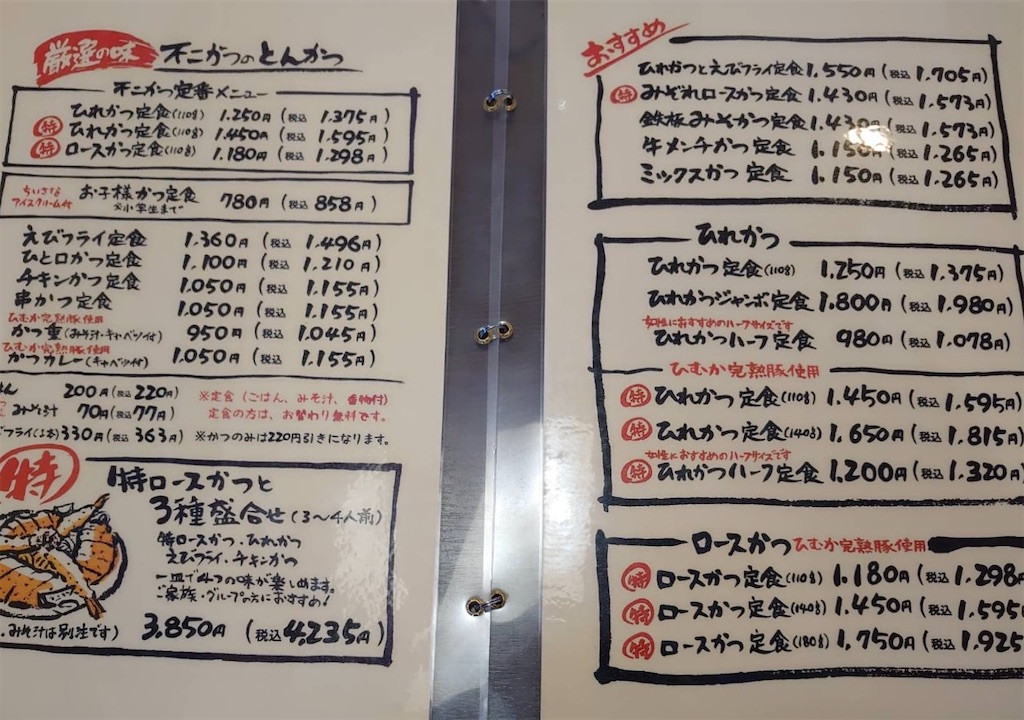 厳選の味 不二かつのとんかつ
不二かつ定番メニュー
ひれかつ定食(110g) 1.250円(税込 1.375円)
特 ひれかつ定食(110g) 1.450円(税込 1.595円)
特 ロースかつ定食(110g) 1.180円(税込 1.298円)
ちいさな
アイスクリーム付
お子様かつ定食 780円(税込 858円)
※小学生まで
えびフライ定食 1.360円(税込 1.496円)
ひと口かつ定食 1.100円(税込 1.210円)
チキンかつ定食 1.050円(税込 1.155円)
串かつ定食 1.050円(税込 1.155円)
ひむか完熟豚使用
かつ重(みそ汁・キャベツ付) 950円(税込 1.045円)
ひむか完熟豚使用
かつカレー(キャベツ付) 1.050円(税込 1.155円)
はん 200円(税込220円)
みそ汁 70円(税込77円)
フライ(1本)330円(税込 363円)
※定食(ごはん、みそ汁、香物付)
定食の方は、お替わり無料です。
※かつのみは220円引きになります。
特
特ロースかつと
3種盛合せ(3〜4人前)
特ロースかつ・ひれかつ
えびフライ・チキンかつ
一皿で4つの味が楽しめます。
ご家族・グループの方におすすめ!
みそ汁は別注です) 3,850円(税込4,235円)
おすすめ
ひれかつとえびフライ定食 1.550円(税込 1.705円)
特 みぞれロースかつ定食 1.430円(税込 1.573円)
鉄板みそかつ定食 1.430円(税込 1.573円)
牛メンチかつ定食 1.150円(税込 1.265円)
ミックスかつ定食 1.150円(税込 1.265円)
ひれかつ
ひれかつ定食(110g) 1.250円(税込 1.375円)
ひれかつジャンボ定食 1.800円(税込 1.980円)
女性におすすめのハーフサイズです
ひれかつハーフ定食 980円(税込 1.078円)
ひむか完熟豚使用
特 ひれかつ定食(110g) 1.450円(税込 1.595円)
特 ひれかつ定食(140g) 1.650円(税込 1.815円)
女性におすすめのハーフサイズです
特 ひれかつハーフ定食 1.200円(税込 1.320円)
ロースかつ ひむか完熟豚使用
特 ロースかつ定食(110g) 1.180円(税込 1.298円
特 ロースかつ定食(140g) 1.450円(税込 1.595
特 ロースかつ定食(180g) 1.750円(税込 1.925